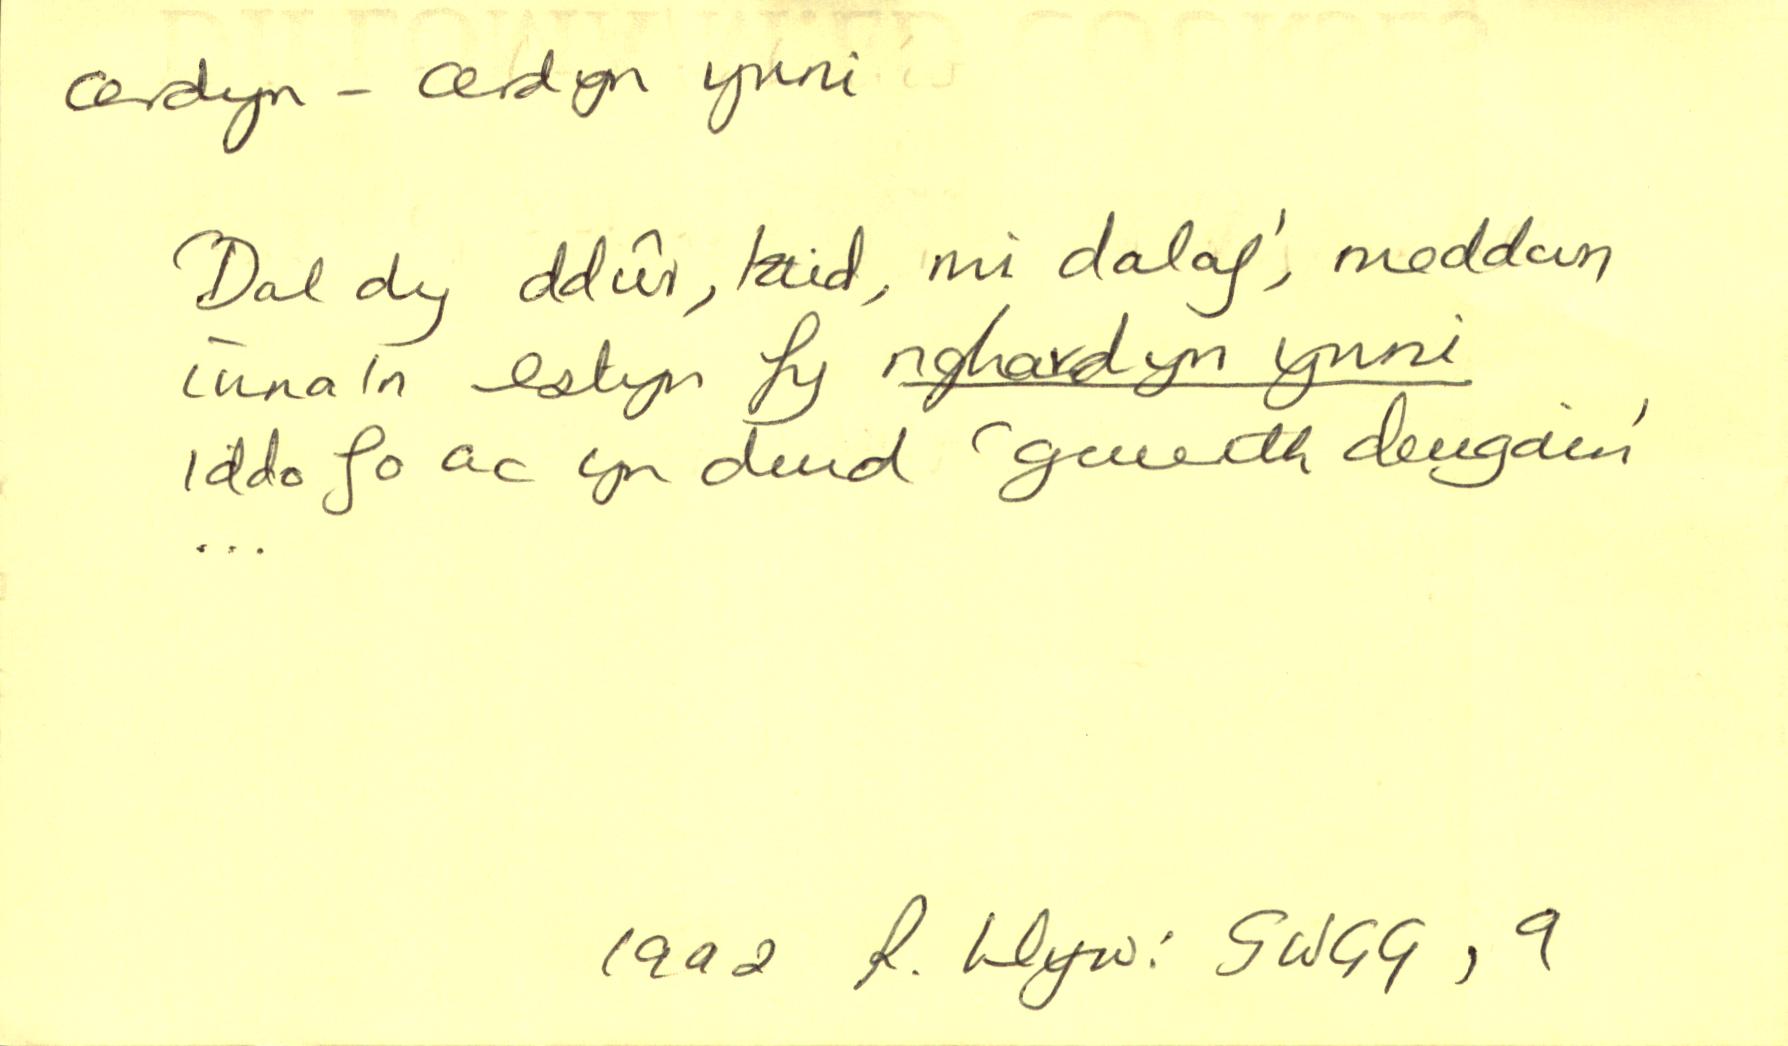 cerdyn - cerdyn ynni
'Dal dy ddŵr, taid, mi dalaf', meddwn
inna 'n estyn fy nghardyn ynni
iddo fo ac yn deud 'gwerth deugain'
...
1992 R. Llyw: GWGG, 9